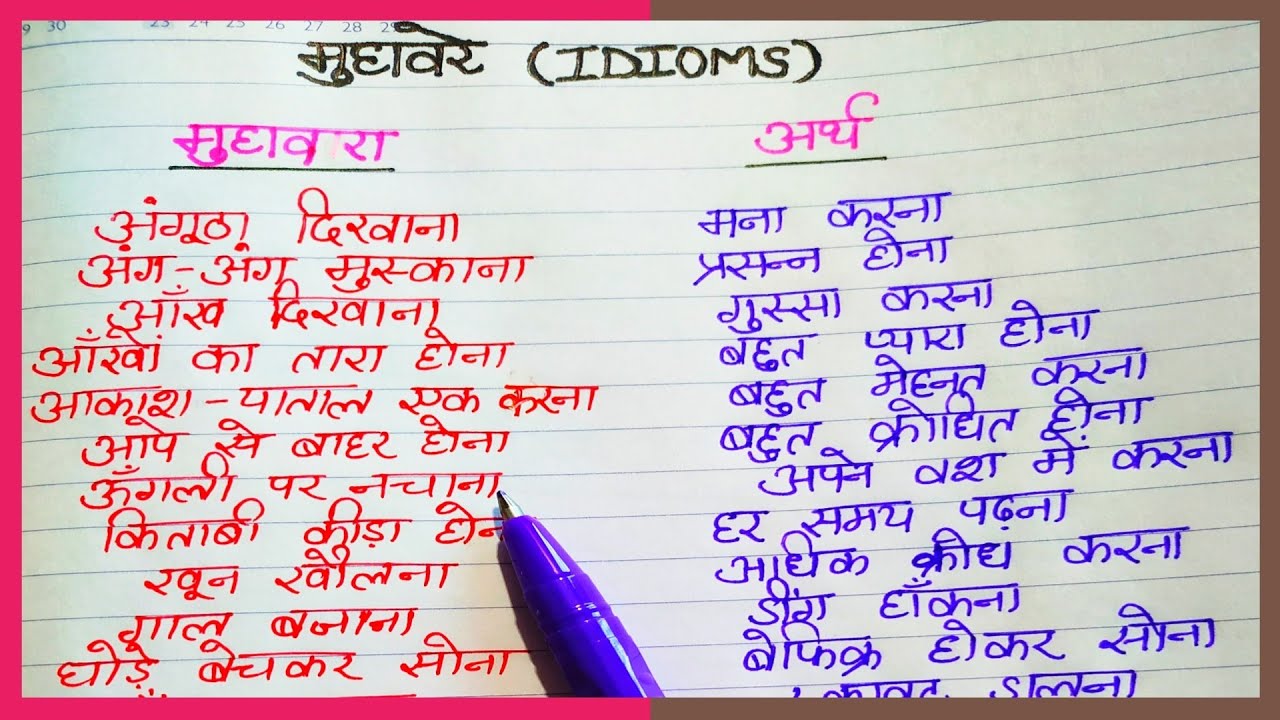 30 23 24 25 26 27 28 29
मुहावेरे (IDIOMS)
मुहावरा अर्थ
अंगूठा दिखाना मना करना
अंग-अंग मुस्काना प्रसन्न होना
आँख दिखाना गुस्सा करना
आँखों का तारा होना बहुत प्यारा होना
आकाश-पाताल एक करना बहुत मेहनत करना
आपे से बाहर होना बहुत क्रोधित होना
ऊँगली पर नचाना अपने वश में करना
किताबी कीड़ा होन हर समय पढ़ना
खून खौलना अधिक क्रोध करना
गाल बजाना डींग हाँकना
घोड़े बेचकर सोना बेफिक्र होकर सोना
डालना